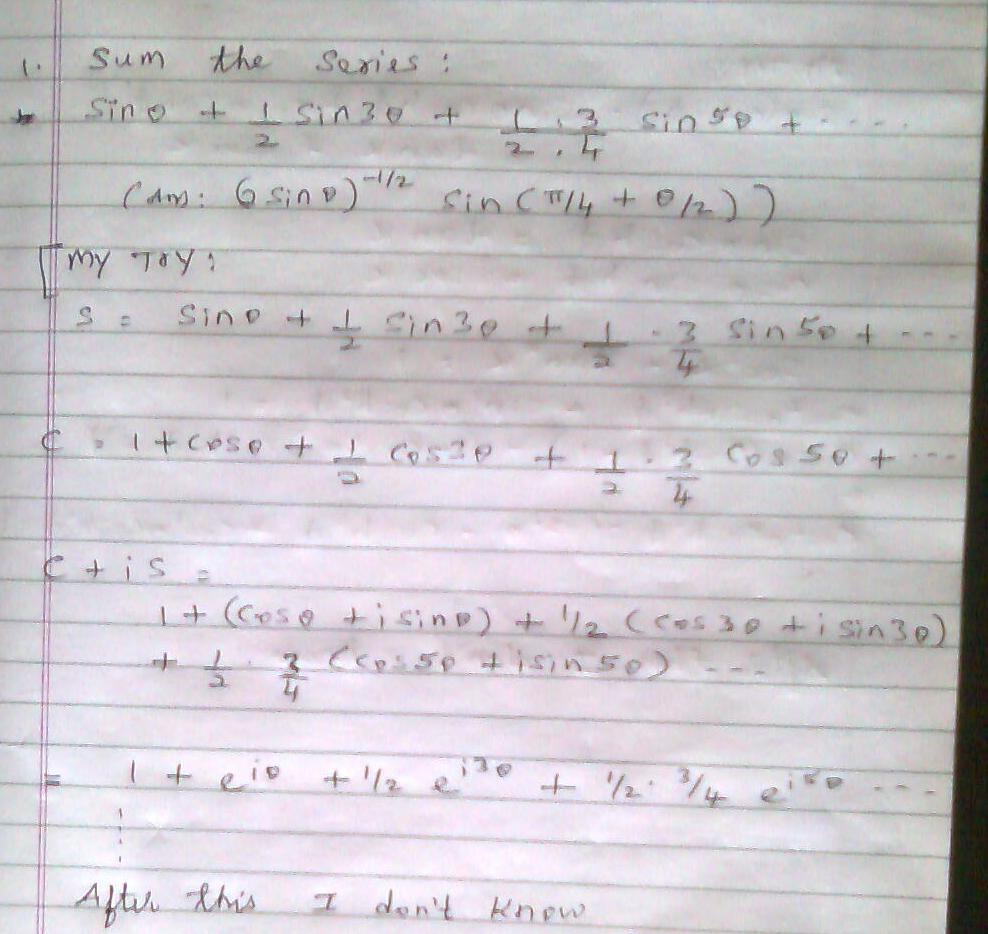 1. Sum the Series :
Sinθ + 1/2 Sin3θ + 1/2 . 3/4 sin5θ + ....
(Ans: (2sinθ)^-1/2 sin(π/4 + θ/2))
My Try :
S = Sinθ + 1/2 Sin3θ + 1/2 . 3/4 Sin5θ + ...
C = 1 + cosθ + 1/2 Cos3θ + 1/2 . 3/4 Cos5θ + ...
C + iS =
1 + (cosθ + i sinθ) + 1/2 (cos3θ + i sin3θ)
+ 1/2 . 3/4 (cos5θ + i sin5θ) ....
= 1 + e^iθ + 1/2 e^i3θ + 1/2 . 3/4 e^i5θ ...
After this I don't know